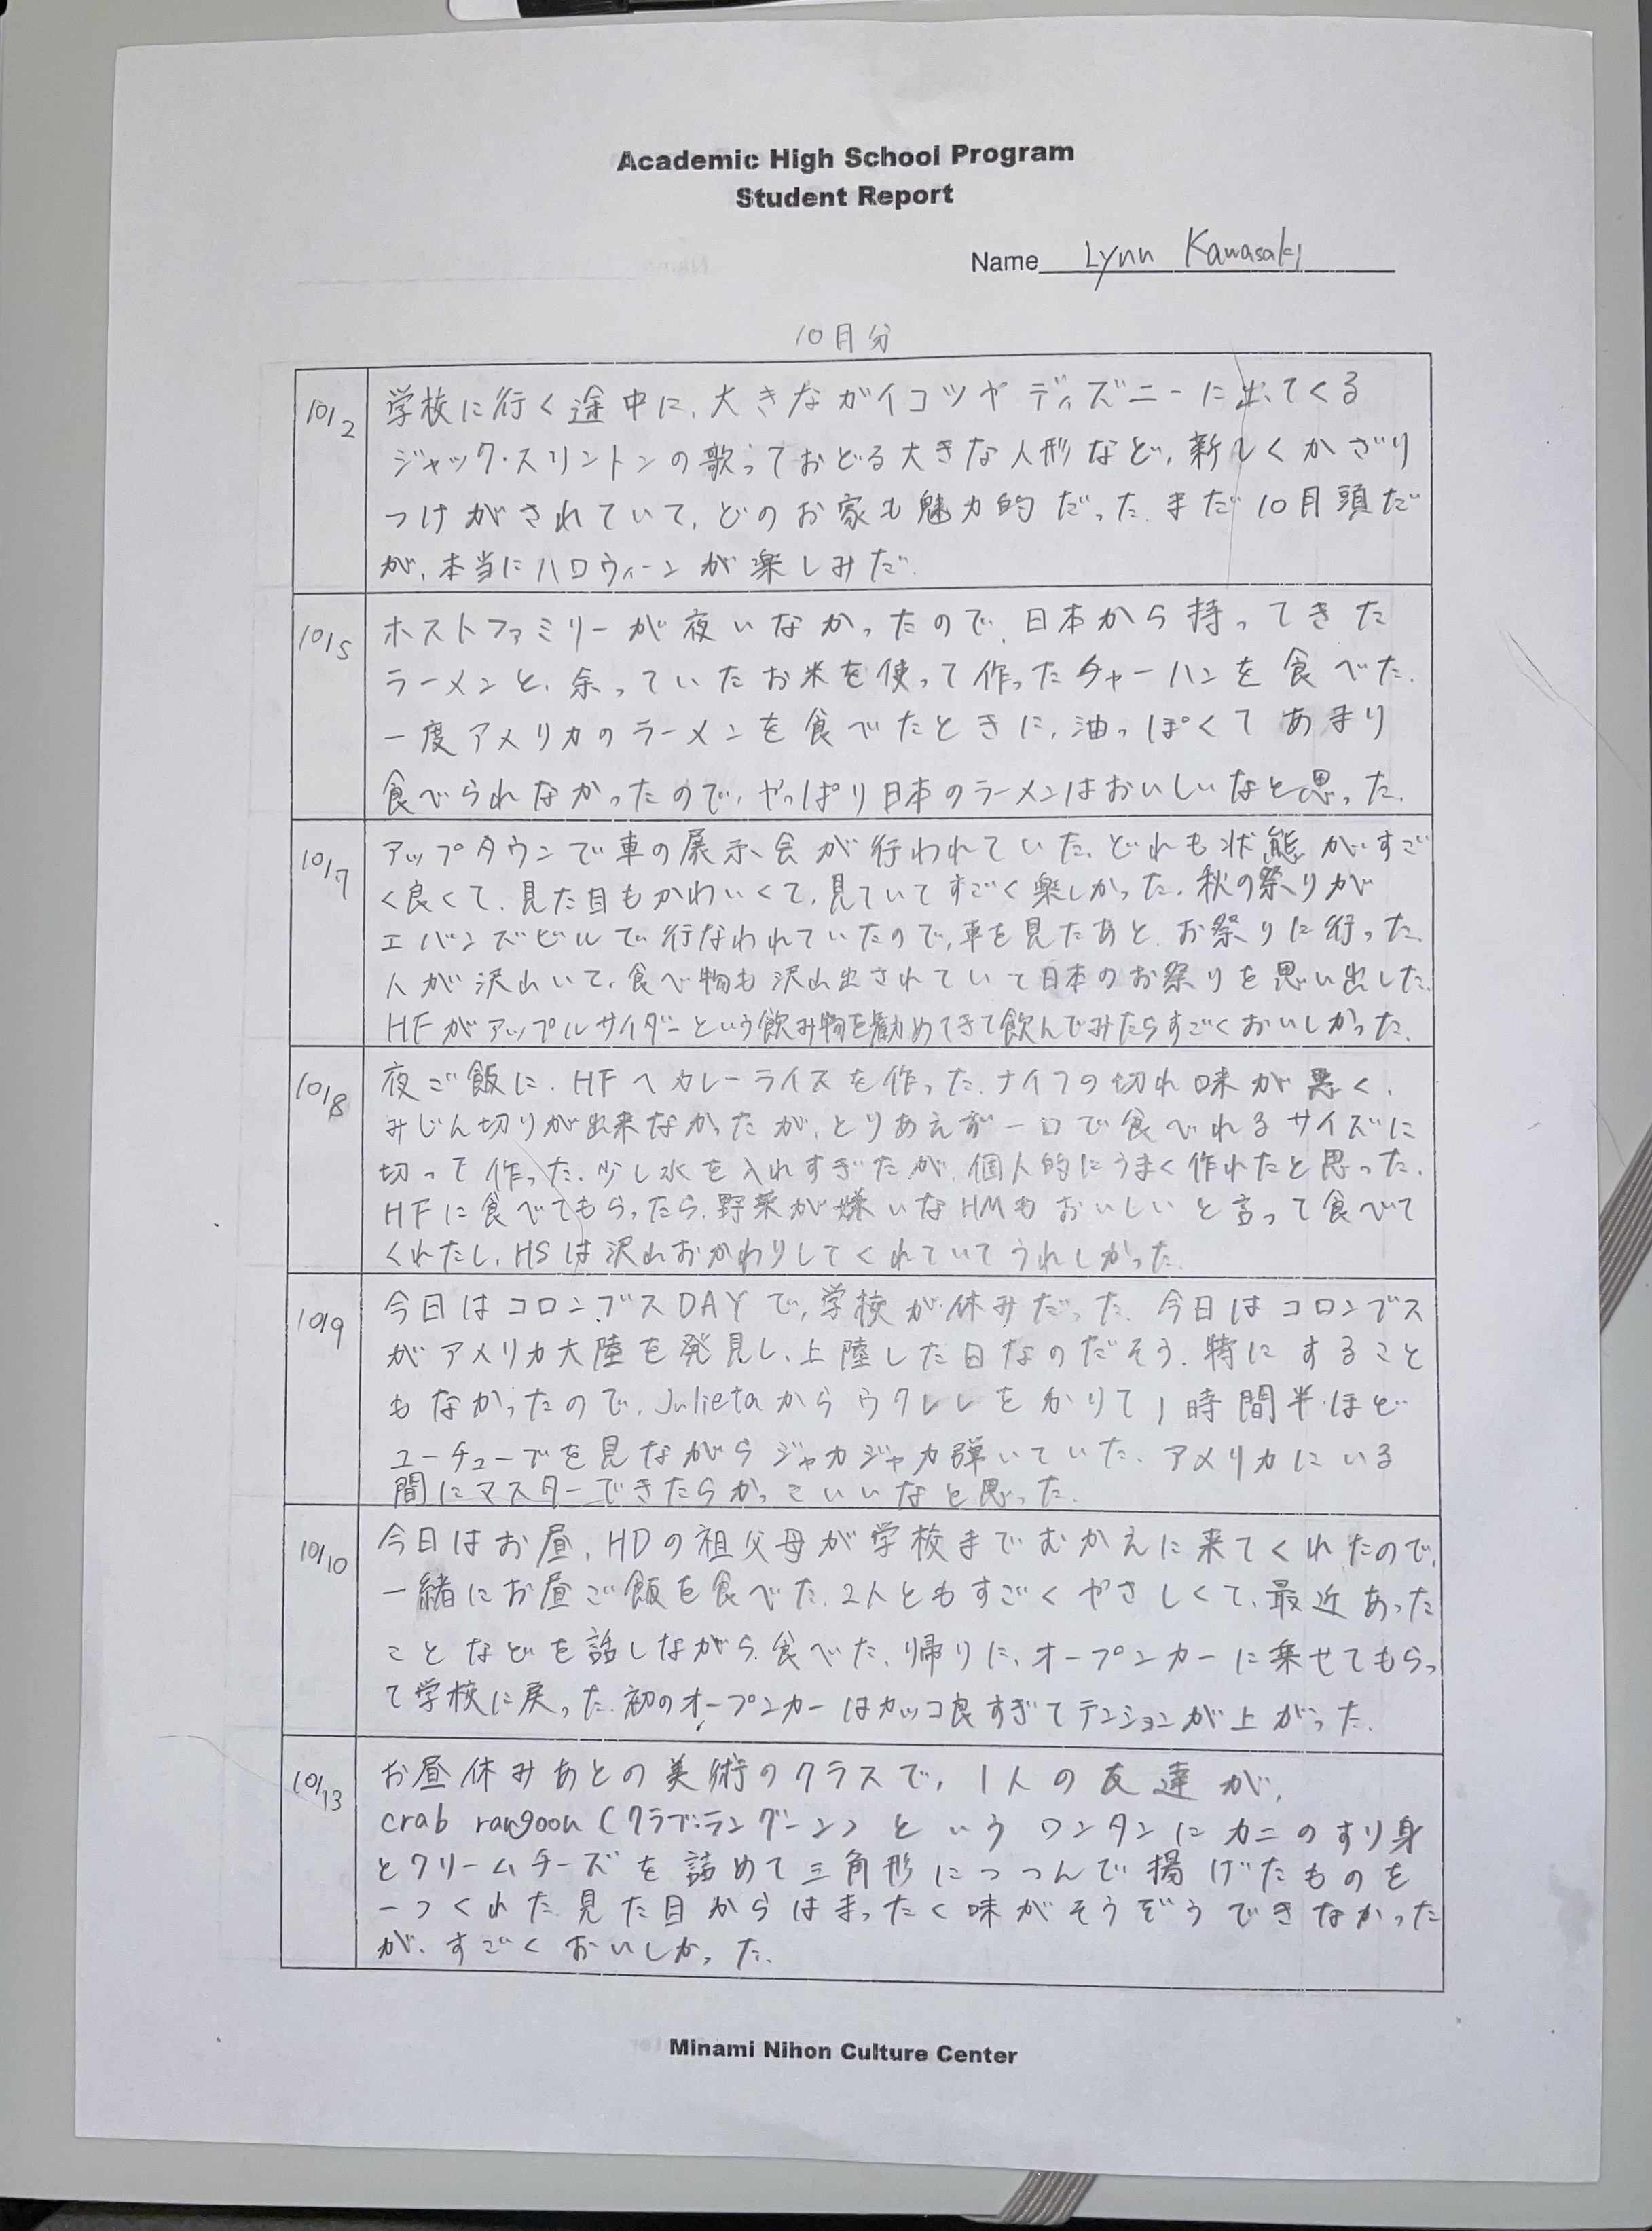 Academic High School Program
Student Report
Name Lynn Kawasaki
10月分
10/2
学校に行く途中に、大きなガイコツやディズニーに出てくる
ジャック・スリントンの歌っておどる大きな人形など、新しくかざり
つけがされていて、どのお家も魅力的だった。まだ10月頭だ
が、本当にハロウィーンが楽しみだ。
10/5
ホストファミリーが夜いなかったので、日本から持ってきた
ラーメンと、余っていたお米を使って作ったチャーハンを食べた。
一度アメリカのラーメンを食べたときに、油っぽくてあまり
食べられなかったので、やっぱり日本のラーメンはおいしいなと思った。
10/7
アップタウンで車の展示会が行われていた。どれも状態がすご
く良くて、見た目もかわいくて、見ていてすごく楽しかった。秋の祭りが
エバンズビルで行なわれていたので、車を見たあと、お祭りに行った。
人が沢山いて、食べ物も沢山出されていて日本のお祭りを思い出した。
HFがアップルサイダーという飲み物を勧めてきて飲んでみたらすごくおいしかった。
10/8
夜ご飯に、HFへカレーライスを作った。ナイフの切れ味が悪く、
みじん切りが出来なかったが、とりあえず一口で食べれるサイズに
切って作った。少し水を入れすぎたが、個人的にうまく作れたと思った。
HFに食べてもらったら、野菜が嫌いなHMもおいしいと言って食べて
くれたし、HSは沢山おかわりしてくれていてうれしかった。
10/9
今日はコロンブスDAYで、学校が休みだった。今日はコロンブス
がアメリカ大陸を発見し、上陸した日なのだそう。特にすること
もなかったので、Julietaからウクレレをかりて1時間半ほど
ユーチューブを見ながらジャカジャカ弾いていた。アメリカにいる
間にマスターできたらかっこいいなと思った。
10/10
今日はお昼、HDの祖父母が学校までむかえに来てくれたので、
一緒にお昼ご飯を食べた。2人ともすごくやさしくて、最近あった
ことなどを話しながら食べた。帰りに、オープンカーに乗せてもらっ
て学校に戻った。初のオープンカーはカッコ良すぎてテンションが上がった。
10/13
お昼休みあとの美術のクラスで、1人の友達が、
crab rangoon (クラブ・ラングーン) というワンタンにカニのすり身
とクリームチーズを詰めて三角形につつんで揚げたものを
一つくれた。見た目からはまったく味がそうぞうできなかった
が、すごくおいしかった。
Minami Nihon Culture Center